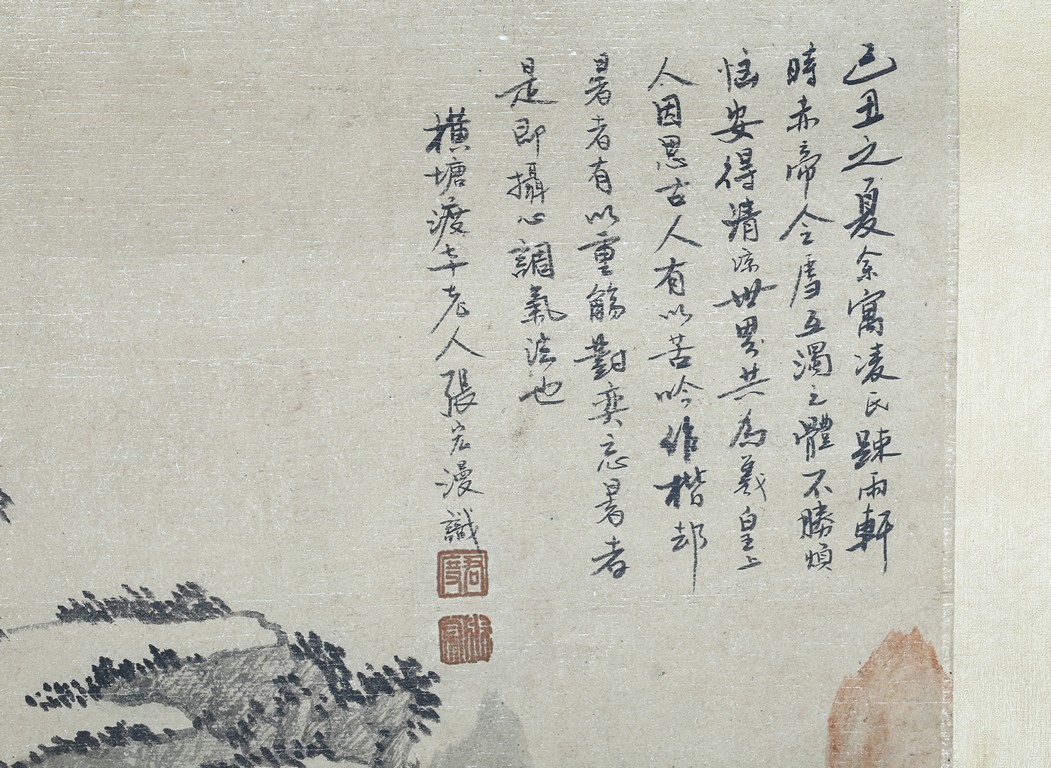 己丑之夏余寓凌氏踈雨軒
時赤帝令虐五濁之體不勝煩
惱安得清凉世界共為羲皇上
人因思古人有以苦吟作楷却
暑者有以重觴對奕忘暑者
是即攝心調氣法也
橫塘渡車老人張宏漫識
君度